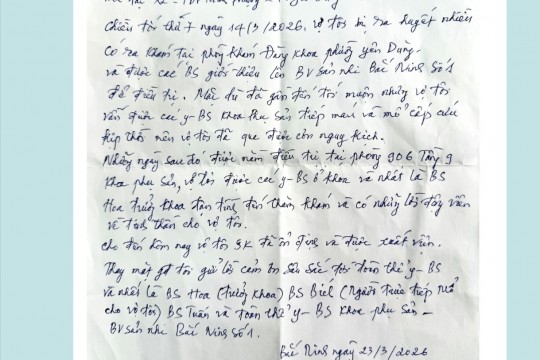 chiều tối thứ 7 ngày 14/3/2026, vợ tôi bị ra huyết nhiều
có ra khám tại phòng khám Đa khoa phường yên Dũng.
và được các BS giới thiệu lên BV sản nhi Bắc Ninh Số 1
để điều trị. Mặc dù đã gần đến tối muộn nhưng vợ tôi
vẫn được các y-BS khoa Phụ Sản tiếp máu và mổ cấp cứu
kịp thời nên vợ tôi đã qua được cơn nguy kịch.
Những ngày sau đó được nằm điều trị tại phòng 906 Tầng 9
khoa phụ sản, vợ tôi được các y-BS ở khoa và nhất là BS
Hoa trưởng khoa tận tình đến thăm khám và có những lời động viên
về tinh thần cho vợ tôi.
cho đến hôm nay vợ tôi SK đã ổn định và được xuất viện.
Thay mặt gđ tôi gửi lời cảm ơn sâu sắc tới toàn thể y-BS
và nhất là BS Hoa (trưởng khoa) BS Biết (Người trực tiếp mổ
cho vợ tôi) BS Tuấn và toàn thể y-BS khoa phụ sản -
BV sản nhi Bắc Ninh Số 1.
Bắc Ninh ngày 23/3/2026